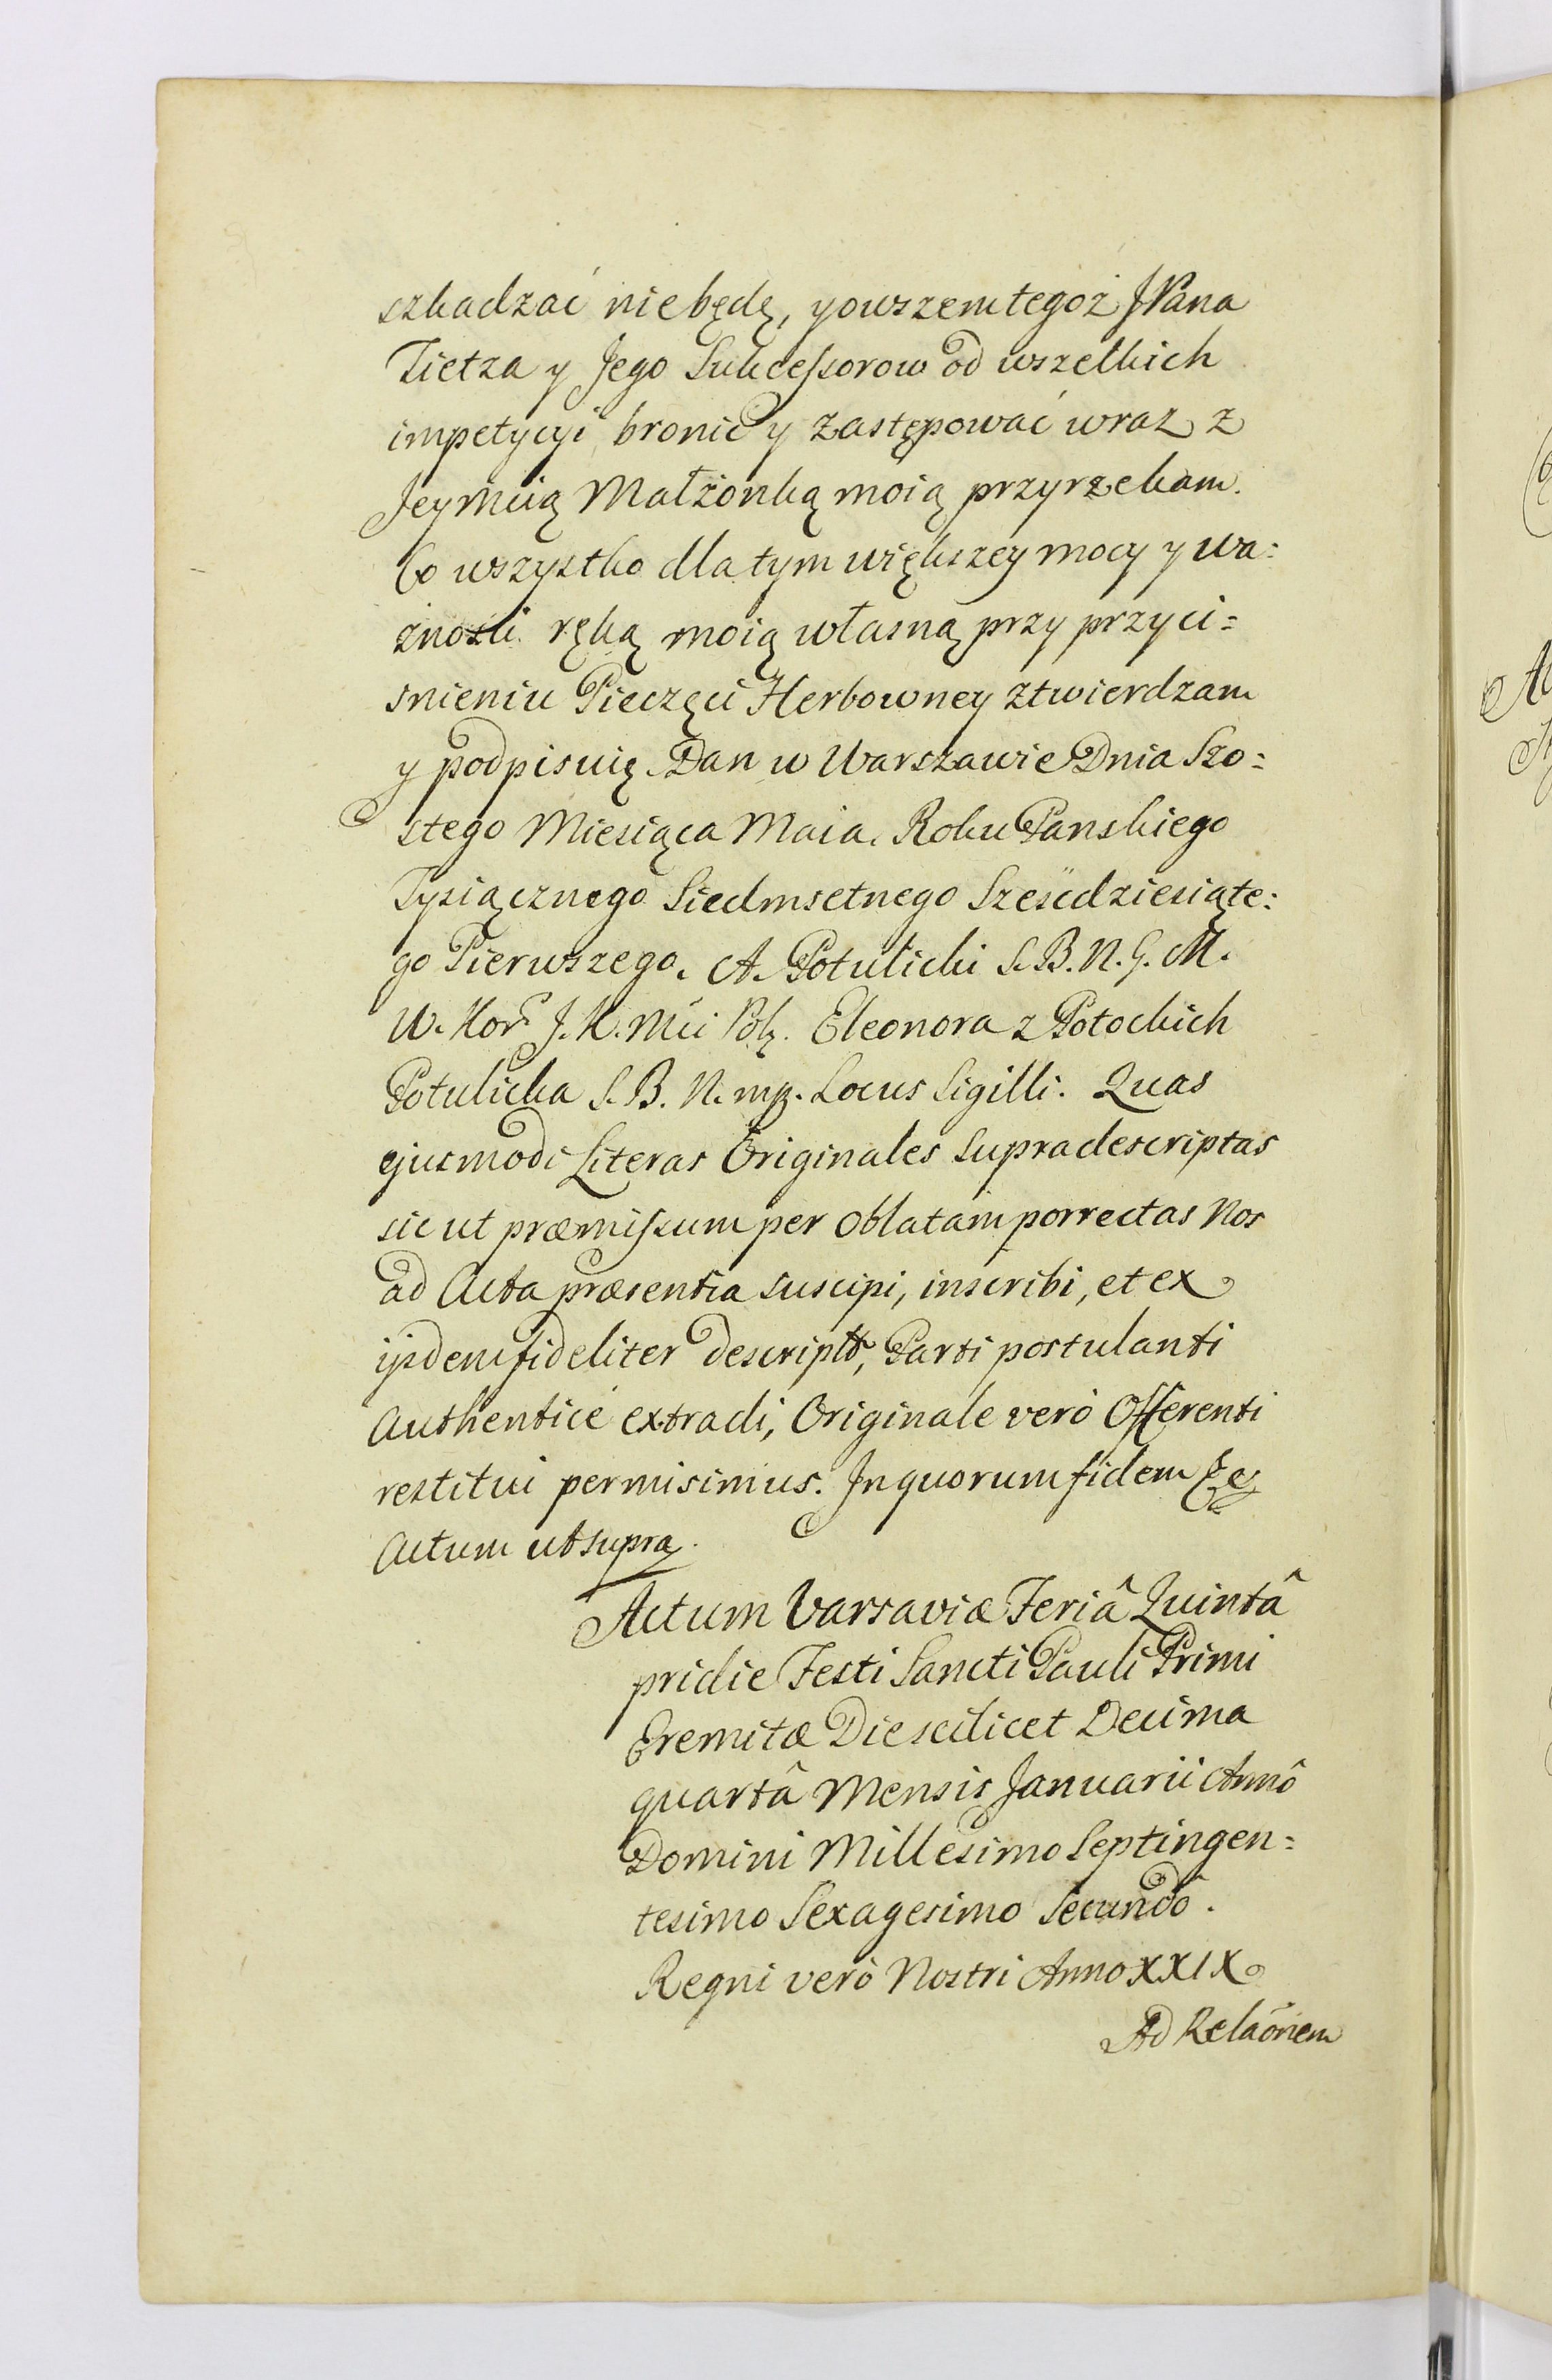 szkadzać niebędę, yowszem tegoż JPana
Tietza y Jego Sukcessorow od wszelkich
impetycyi bronić y zastępować wraz z
Jeymcią Małżonką moią przyrzekam.
Co wszystko dla tym większey mocy y wa=
żności ręką moią własną przy przyci=
snieniu Pieczęci Herbowney ztwierdzam
y podpisuię. Dan w Warszawie Dnia Szo=
stego Miesiąca Maia. Roku Panskiego
Tysiącznego Siedmsetnego Sześćdziesiąte=
go Pierwszego. A. Potulicki S. B. N. G. M.
W. Kor. J. K. Mci Pol. Eleonora z Potockich
Potulicka S. B. N. mp. Locus Sigilli. Quas
ejusmodi Literas Originales supradescriptas
sic ut præmissum per Oblatam porrectas Nos
ad Acta præsentia suscipi, inscribi, et ex
ijsdem fideliter descripto, Parti postulanti
Authenticè extradi, Originale verò Offerenti
restitui permisimus. In quorum fidem &c
Actum ut supra.
Actum Varsaviæ Feriâ Quintâ
pridie Festi Sancti Pauli Primi
Eremitæ Die scilicet Decima
quartâ Mensis Januarii Annô
Domini Millesimo Septingen=
tesimo Sexagesimo Secundô.
Regni verò Nostri Anno XXIX
Ad Relaõnem